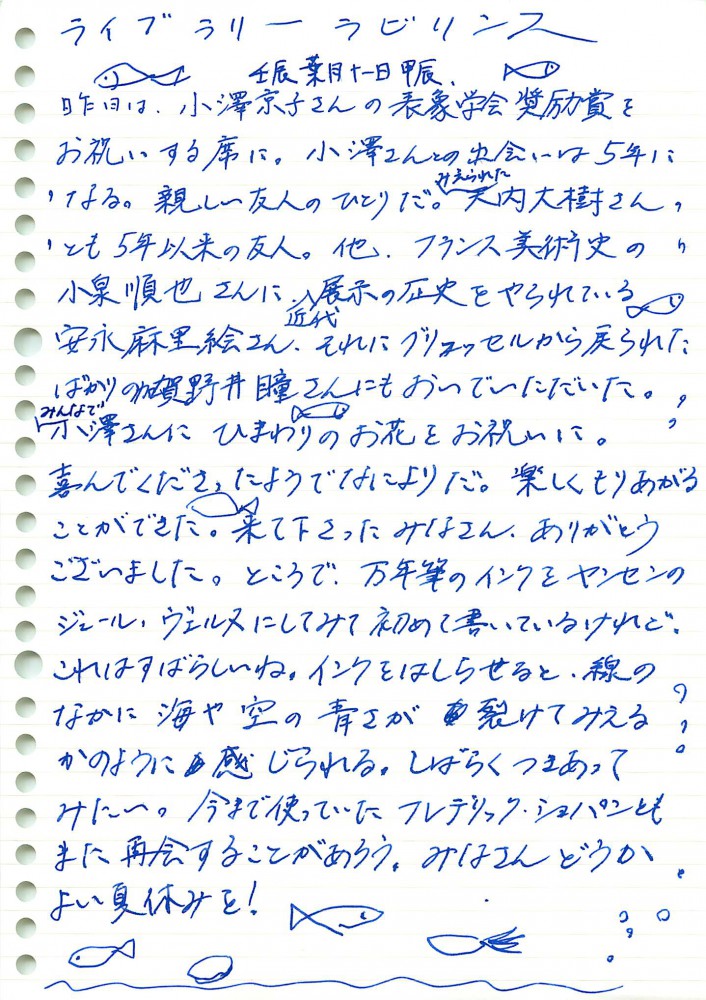 ライブラリーラビリンス
壬辰葉月十一日甲辰、
昨日は、小澤京子さんの表象学会奨励賞を
お祝いする席に。小澤さんとの出会いは5年に
なる。親しい友人のひとりだ。みえられた天内大樹さん
とも5年以来の友人。他、フランス美術史の
小泉順也さんに、近代展示の歴史をやられている
安永麻里絵さん、それにブリュッセルから戻られた
ばかりの加賀野井瞳さんにもおいでいただいた。
みんなで小澤さんにひまわりのお花をお祝いに。
喜んでくださったようでなによりだ。楽しくもりあがる
ことができた。来て下さったみなさん、ありがとう
ございました。ところで、万年筆のインクをヤンセンの
ジュール・ヴェルヌにしてみて初めて書いているけれど、
これはすばらしいね。インクをはしらせると、線の
なかに海や空の青さが裂けてみえる
かのように感じられる。しばらくつきあって
みたい。今まで使っていたフレデリック・ショパンとも
また再会することがあろう。みなさんどうか
よい夏休みを!